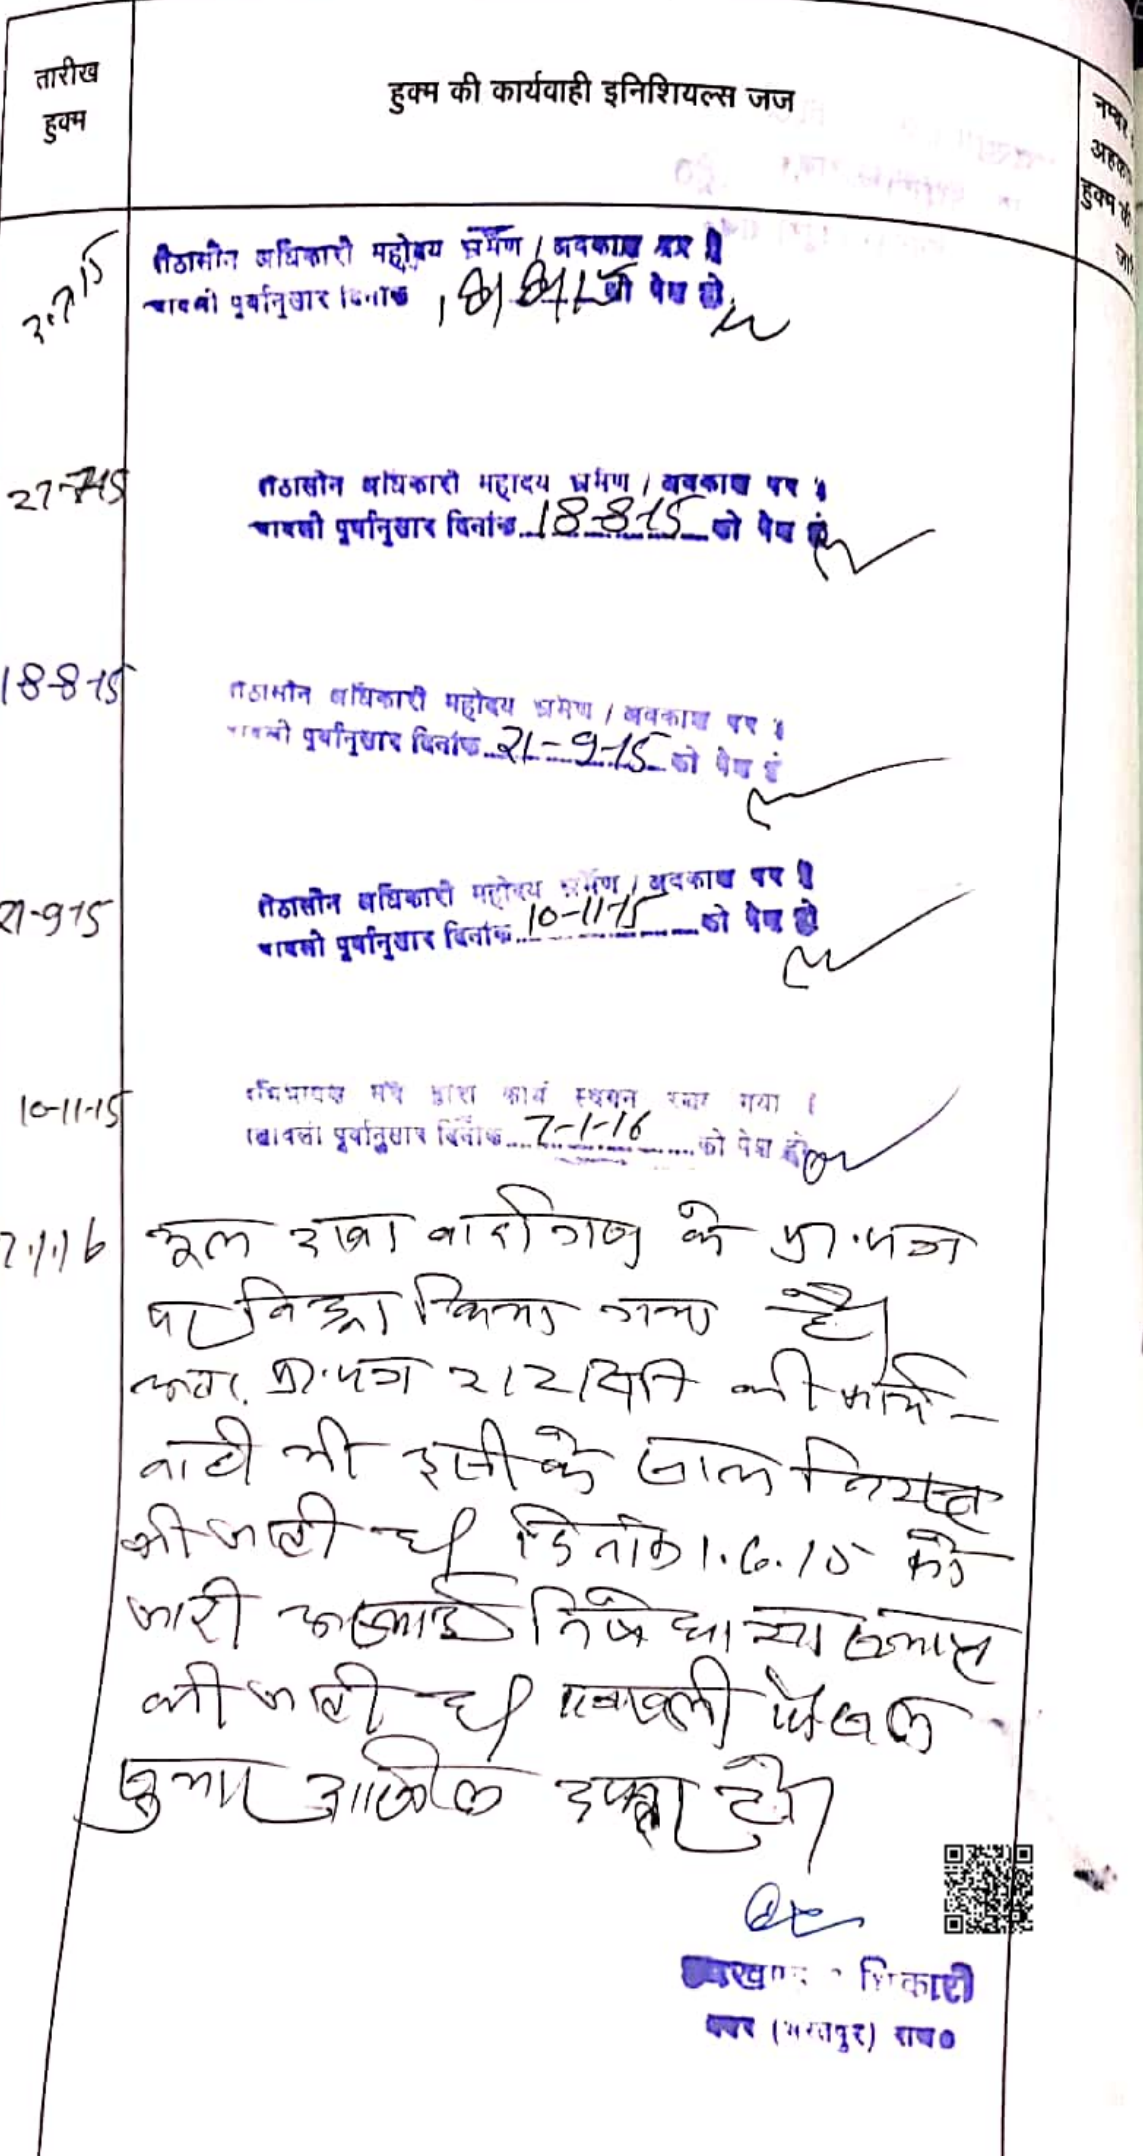 तारीख
हुक्म
हुक्म की कार्यवाही इनिशियल्स जज
नम्बर
अहका
हुक्म की
जा
पीठासीन अधिकारी महोदय भ्रमण / अवकाश पर है
पत्रावली पूर्वानुसार दिनांक 18/8/15 को पेश हो
27-7-15
पीठासीन अधिकारी महोदय भ्रमण / अवकाश पर है
पत्रावली पूर्वानुसार दिनांक 18-8-15 को पेश हो
18-8-15
पीठासीन अधिकारी महोदय भ्रमण / अवकाश पर है
पत्रावली पूर्वानुसार दिनांक 21-9-15 को पेश हो
21-9-15
पीठासीन अधिकारी महोदय भ्रमण / अवकाश पर है
पत्रावली पूर्वानुसार दिनांक 10-11-15 को पेश हो
10-11-15
अभिभाषक संघ द्वारा कार्य स्थगन रखा गया ।
पत्रावली पूर्वानुसार दिनांक 7-1-16 को पेश हो
7.1.16
मूल दावा वादीगण के प्रा.पत्र
पर विड्रा किया गया है।
अतः प्रा.पत्र 212 की कार्य-
वाही भी इसी के साथ निरस्त
की जाती है। दिनांक 1.6.15 को
जारी अस्थाई निषेधाज्ञा समाप्त
की जाती है। पत्रावली फैसल
शुमार दाखिल दफ्तर हो।
उपखण्ड अधिकारी
(भरतपुर) राज०